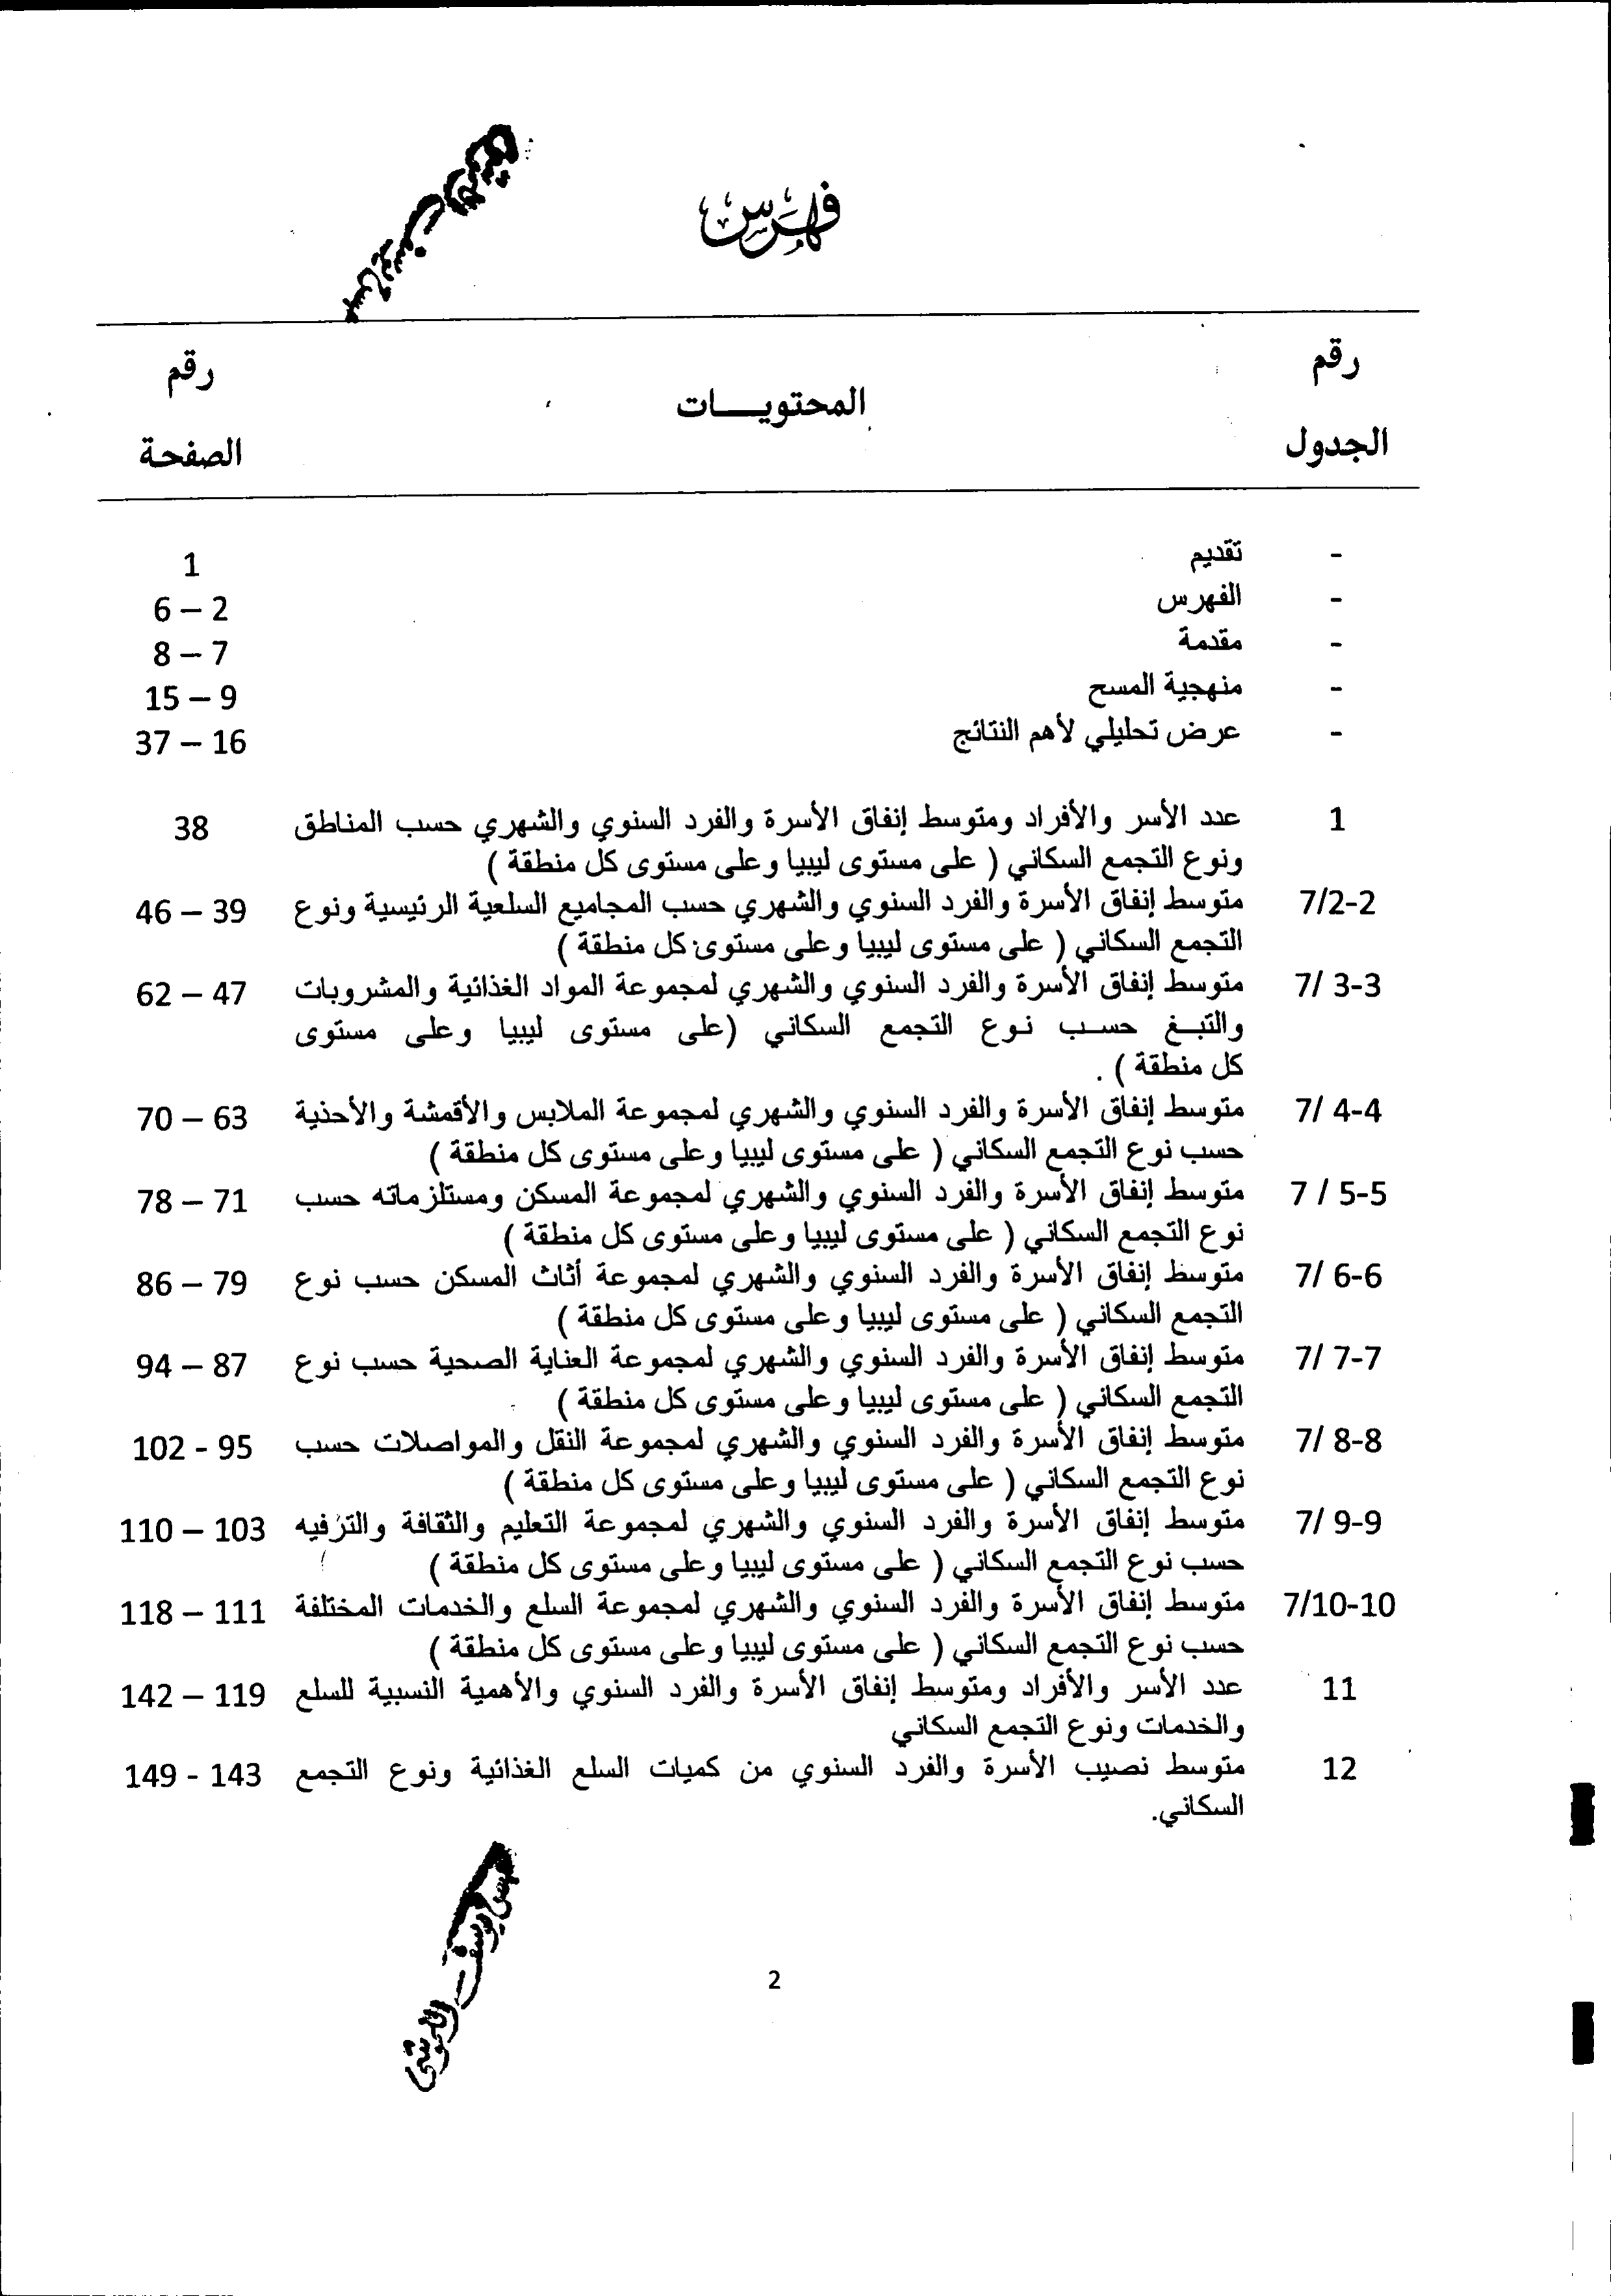 فهرس
رقم
الجدول
المحتويـــات
رقم
الصفحة
- تقديم 1
- الفهرس 2 – 6
- مقدمة 7 – 8
- منهجية المسح 9 – 15
- عرض تحليلي لأهم النتائج 16 – 37
1 عدد الأسر والأفراد ومتوسط إنفاق الأسرة والفرد السنوي والشهري حسب المناطق 38
ونوع التجمع السكاني ( على مستوى ليبيا وعلى مستوى كل منطقة )
7/2-2 متوسط إنفاق الأسرة والفرد السنوي والشهري حسب المجاميع السلعية الرئيسية ونوع 39 – 46
التجمع السكاني ( على مستوى ليبيا وعلى مستوى كل منطقة )
7/ 3-3 متوسط إنفاق الأسرة والفرد السنوي والشهري لمجموعة المواد الغذائية والمشروبات 47 – 62
والتبـغ حسـب نـوع التجمع السكاني (على مستوى ليبيا وعلى مستوى
كل منطقة ) .
7/ 4-4 متوسط إنفاق الأسرة والفرد السنوي والشهري لمجموعة الملابس والأقمشة والأحذية 63 – 70
حسب نوع التجمع السكاني ( على مستوى ليبيا وعلى مستوى كل منطقة )
7 / 5-5 متوسط إنفاق الأسرة والفرد السنوي والشهري لمجموعة المسكن ومستلزماته حسب 71 – 78
نوع التجمع السكاني ( على مستوى ليبيا وعلى مستوى كل منطقة )
7/ 6-6 متوسط إنفاق الأسرة والفرد السنوي والشهري لمجموعة أثاث المسكن حسب نوع 79 – 86
التجمع السكاني ( على مستوى ليبيا وعلى مستوى كل منطقة )
7/ 7-7 متوسط إنفاق الأسرة والفرد السنوي والشهري لمجموعة العناية الصحية حسب نوع 87 – 94
التجمع السكاني ( على مستوى ليبيا وعلى مستوى كل منطقة )
7/ 8-8 متوسط إنفاق الأسرة والفرد السنوي والشهري لمجموعة النقل والمواصلات حسب 95 - 102
نوع التجمع السكاني ( على مستوى ليبيا وعلى مستوى كل منطقة )
7/ 9-9 متوسط إنفاق الأسرة والفرد السنوي والشهري لمجموعة التعليم والثقافة والترفيه 103 – 110
حسب نوع التجمع السكاني ( على مستوى ليبيا وعلى مستوى كل منطقة )
7/10-10 متوسط إنفاق الأسرة والفرد السنوي والشهري لمجموعة السلع والخدمات المختلفة 111 – 118
حسب نوع التجمع السكاني ( على مستوى ليبيا وعلى مستوى كل منطقة )
11 عدد الأسر والأفراد ومتوسط إنفاق الأسرة والفرد السنوي والأهمية النسبية للسلع 119 – 142
والخدمات ونوع التجمع السكاني
12 متوسط نصيب الأسرة والفرد السنوي من كميات السلع الغذائية ونوع التجمع 143 - 149
السكاني.
2